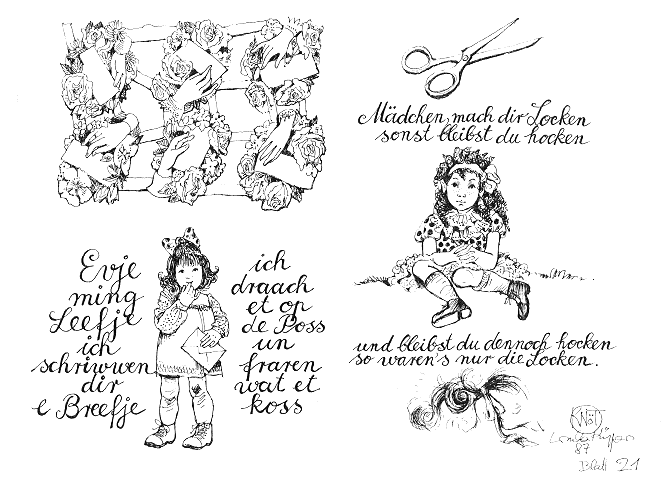 Mädchen, mach dir Locken
sonst bleibst du hocken
Evje
ming
Leefje
ich
schriwwen
dir
e Breefje
ich
draach
et op
de Poss
un
fraren
wat et
koss
und bleibst du dennoch hocken
so waren's nur die Locken.
87
Blatt 21